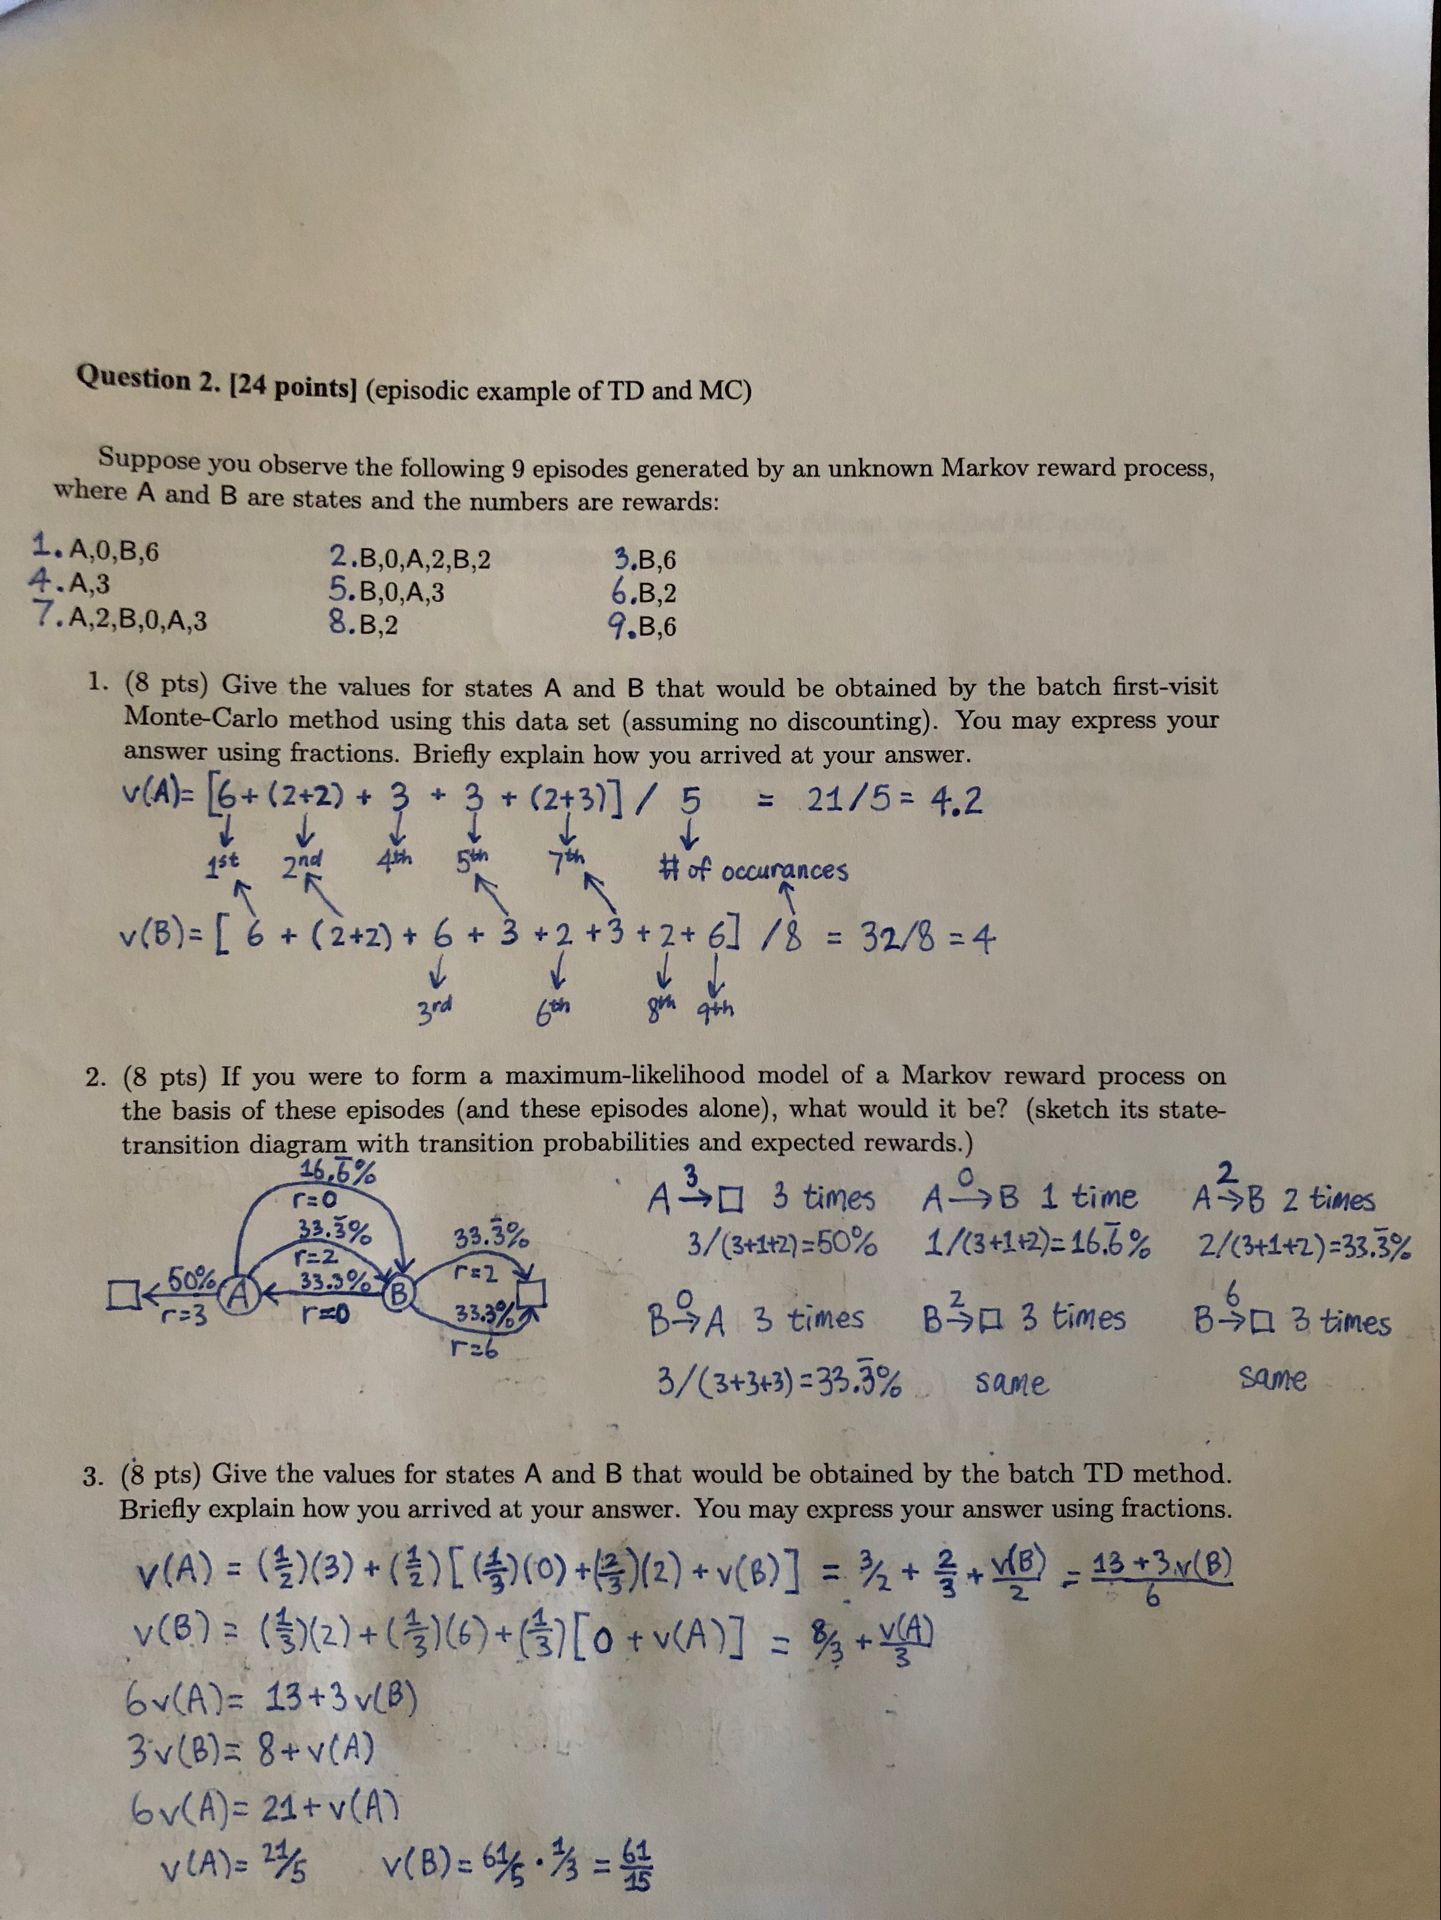 Question 2. [24 points] (episodic example of TD and MC)
Suppose you observe the following 9 episodes generated by an unknown Markov reward process,
where A and B are states and the numbers are rewards:
1. A,0,B,6 2. B,0,A,2,B,2 3. B,6
4. A,3 5. B,0,A,3 6. B,2
7. A,2,B,0,A,3 8. B,2 9. B,6
1. (8 pts) Give the values for states A and B that would be obtained by the batch first-visit
Monte-Carlo method using this data set (assuming no discounting). You may express your
answer using fractions. Briefly explain how you arrived at your answer.
v(A)= [6+ (2+2) + 3 + 3 + (2+3)] / 5 = 21/5 = 4.2
↓ ↓ ↓ ↓ ↓ ↓
1st 2nd 4th 5th 7th # of occurances
v(B)= [ 6 + (2+2) + 6 + 3 + 2 + 3 + 2 + 6] /8 = 32/8 = 4
↓ ↓ ↓ ↓
3rd 6th 8th 9th
2. (8 pts) If you were to form a maximum-likelihood model of a Markov reward process on
the basis of these episodes (and these episodes alone), what would it be? (sketch its state-
transition diagram with transition probabilities and expected rewards.)
16.6̅%
r=0
33.3̅%
r=2
50%
r=3
A
33.3%
r=0
B
33.3̅%
r=2
33.3%
r=6
A 3→ □ 3 times A 0→ B 1 time A 2→ B 2 times
3/(3+1+2)=50% 1/(3+1+2)=16.6̅% 2/(3+1+2)=33.3̅%
B 0→ A 3 times B 2→ □ 3 times B 6→ □ 3 times
3/(3+3+3)=33.3̅% same same
3. (8 pts) Give the values for states A and B that would be obtained by the batch TD method.
Briefly explain how you arrived at your answer. You may express your answer using fractions.
v(A) = (1/2)(3) + (1/2)[(1/3)(0) + (2/3)(2) + v(B)] = 3/2 + 2/3 + v(B)/2 = 13+3v(B)/6
v(B) = (1/3)(2) + (1/3)(6) + (1/3)[0 + v(A)] = 8/3 + v(A)/3
6v(A)= 13+3v(B)
3v(B)= 8+v(A)
6v(A)= 21+v(A)
v(A)= 21/5 v(B)= 61/5 · 1/3 = 61/15